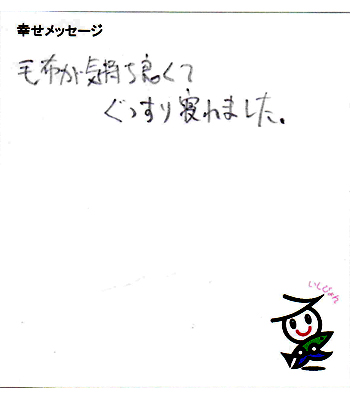 幸せメッセージ
毛布が気持ち良くて
ぐっすり寝れました。